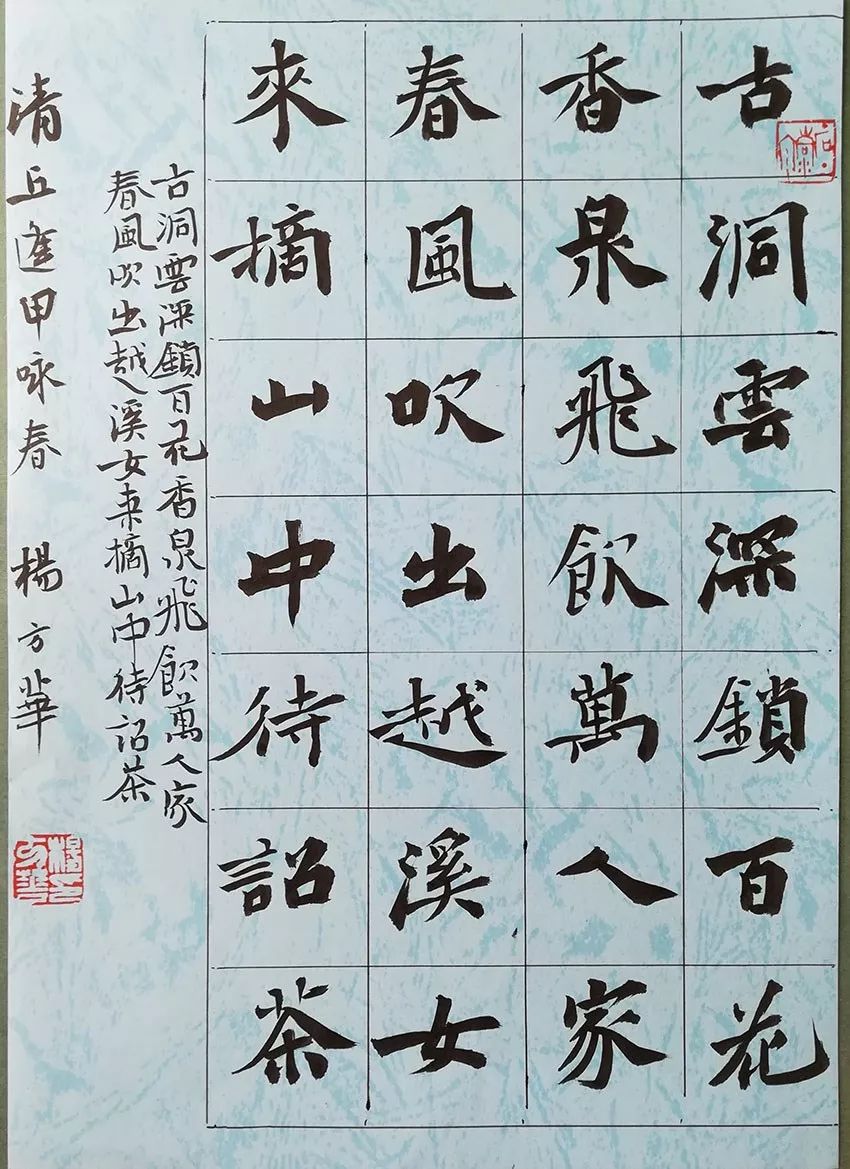 古洞雲深鎖百花
香泉飛飲萬人家
春風吹出越溪女
來摘山中待詔茶
古洞雲深鎖百花香泉飛飲萬人家
春風吹出越溪女来摘山中待詔茶
清丘逢甲咏春 楊方華